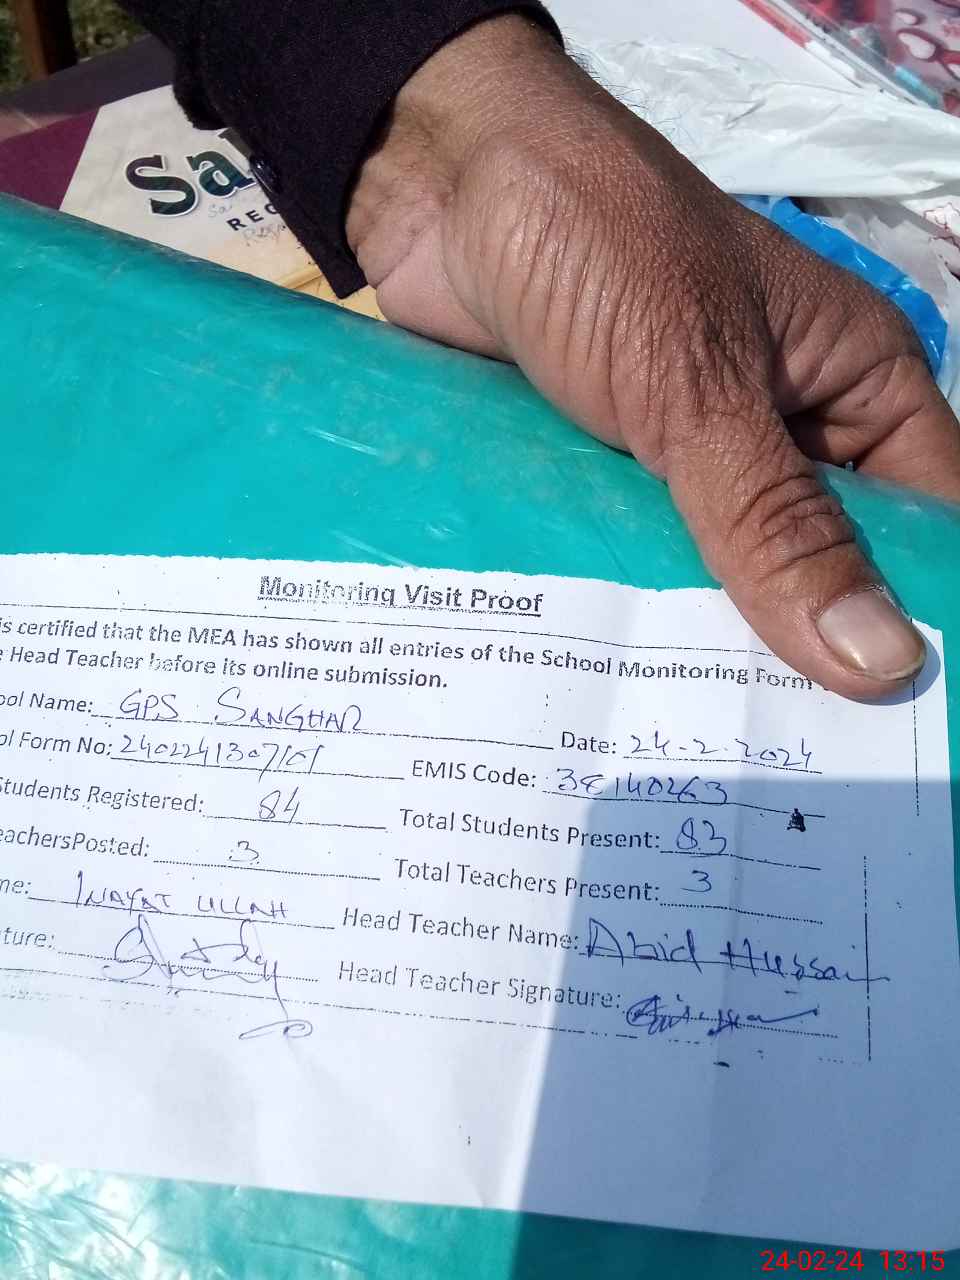 Sa
REG
Monitoring Visit Proof
is certified that the MEA has shown all entries of the School Monitoring Form
Head Teacher before its online submission.
ool Name: GPS SANGHAR Date: 24-2-2024
ol Form No: EMIS Code: 38140263
Students Registered: 84 Total Students Present: 83
eachersPosted: 3 Total Teachers Present: 3
me: INAYAT ULLAH Head Teacher Name: Abid Hussain
ture: Head Teacher Signature:
24-02-24 13:15